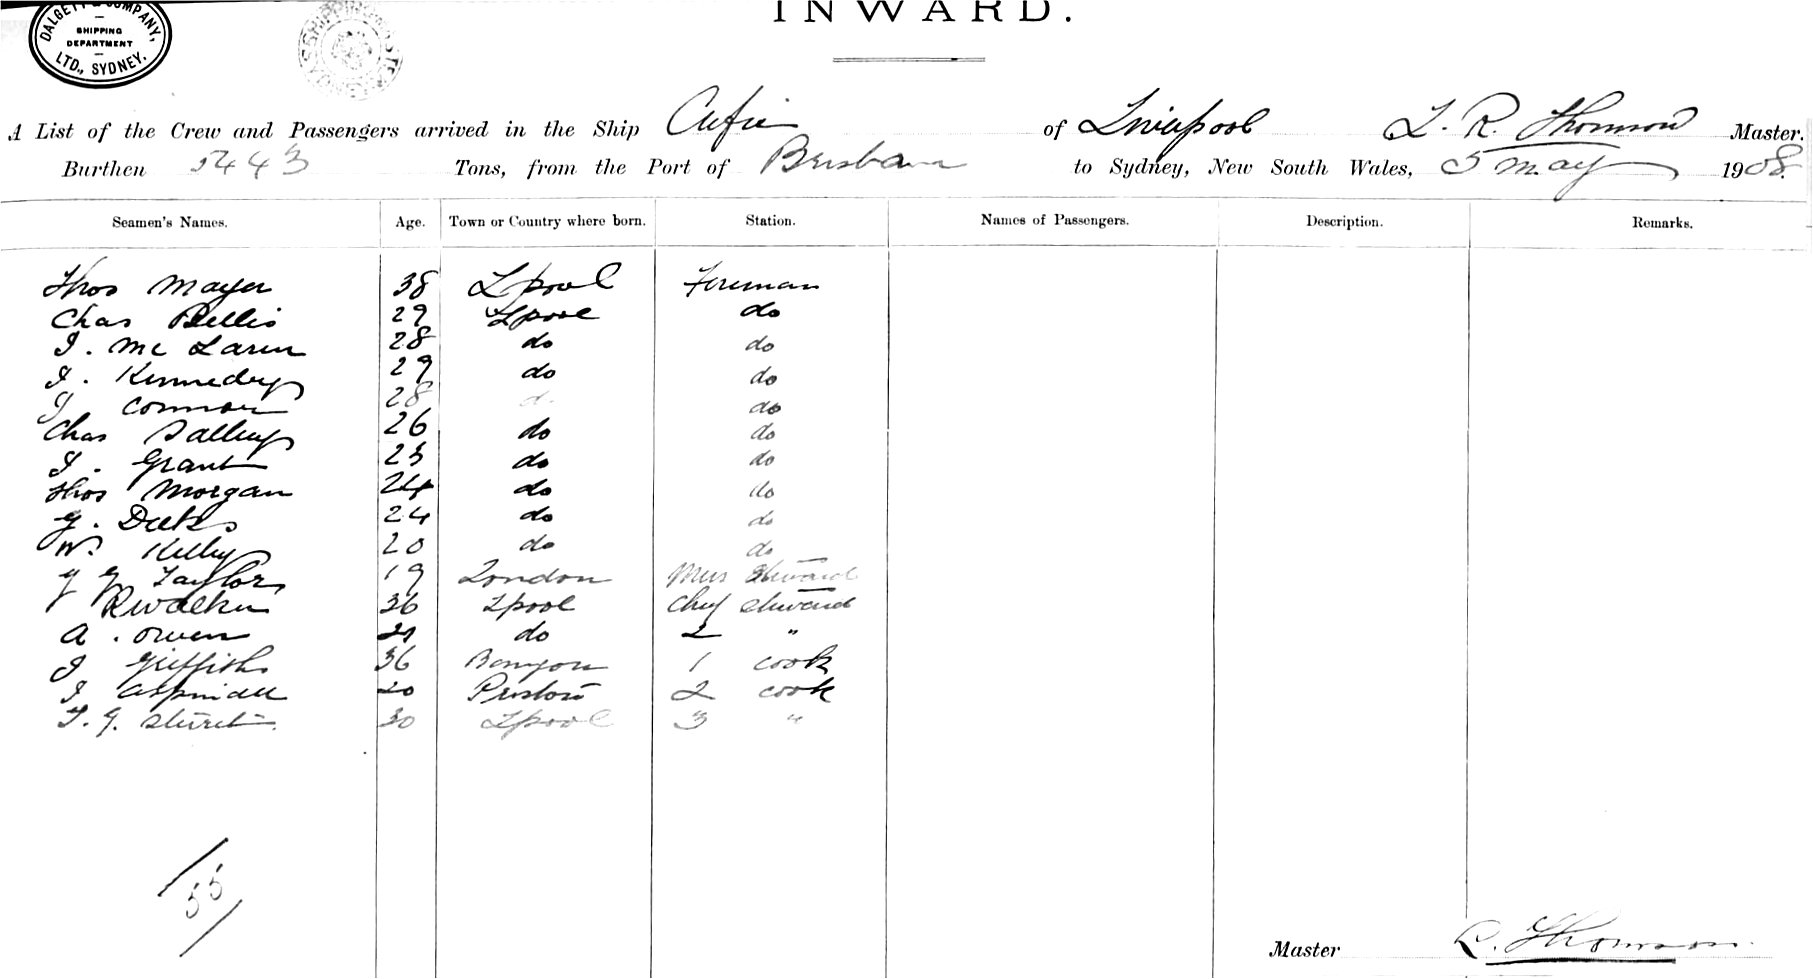 DALGETY & COMPANY,
SHIPPING
DEPARTMENT
LTD., SYDNEY.
INWARD.
A List of the Crew and Passengers arrived in the Ship Cufic of Liverpool L. R. Thomson Master.
Burthen 5443 Tons, from the Port of Brisbane to Sydney, New South Wales, 5 May 1908.
Seamen's Names. Age. Town or Country where born. Station. Names of Passengers. Description. Remarks.
Thos Mayer 38 Lpool Fireman
Chas Bellis 29 Lpool do
J. McLaren 28 do do
J. Kennedy 29 do do
J Connor 28 do
Chas 26 do do
J. Grant 25 do do
Thos Morgan 24 do do
24 do do
W. Kelly 20 do do
Taylor 19 London Mess Steward
R Walker 36 Lpool Chief Steward
A. Owen do 2 "
J Griffiths 36 Bangor 1 cook
J Aspinall 20 Preston 2 cook
30 Lpool 3 "
55
Master R. Thomson